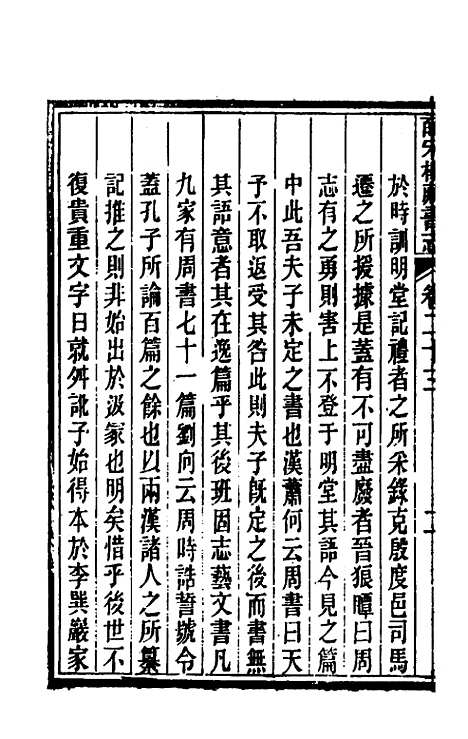 於時訓明堂記禮者之所采錄克殷度邑司馬
遷之所援據是蓋有不可盡廢者晉狼瞫曰周
志有之勇則害上不登于明堂其語今見之篇
中此吾夫子未定之書也漢蕭何云周書曰天
予不取返受其咎此則夫子旣定之後而書無
其語意者其在逸篇乎其後班固志藝文書凡
九家有周書七十一篇劉向云周時誥誓號令
蓋孔子所論百篇之餘也以兩漢諸人之所纂
記推之則非始出於汲冢也明矣惜乎後世不
復貴重文字日就舛訛予始得本於李巽巖家
卷二十三
二